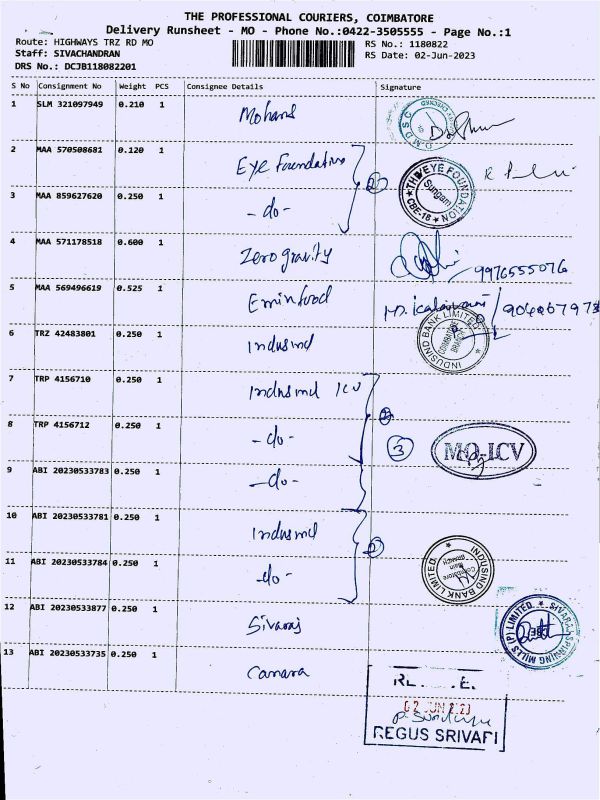 THE PROFESSIONAL COURIERS, COIMBATORE
Delivery Runsheet - MO - Phone No.:0422-3505555 - Page No.:1
Route: HIGHWAYS TRZ RD MO RS No.: 1180822
Staff: SIVACHANDRAN RS Date: 02-Jun-2023
DRS No.: DCJB118082201
S No Consignment No Weight PCS Consignee Details Signature
1 SLM 321097949 0.210 1 Mohans
DMDSC
2 MAA 570508681 0.120 1 Eye Foundation
THE EYE FOUNDATION
Sungam
CBE-18
3 MAA 859627620 0.250 1 -do-
4 MAA 571178518 0.600 1 Zero gravity
9976555076
5 MAA 569496619 0.525 1
6 TRZ 42483801 0.250 1 Indusind
INDUSIND BANK LIMITED
7 TRP 4156710 0.250 1 Indusind ICV
8 TRP 4156712 0.250 1 -do-
3 MO-ICV
9 ABI 20230533783 0.250 1 -do-
10 ABI 20230533781 0.250 1 Indusind
11 ABI 20230533784 0.250 1 -do-
INDUSIND BANK LIMITED
12 ABI 20230533877 0.250 1 Sivaraj
SIVARAJ SPINNING MILLS (P) LIMITED
13 ABI 20230533735 0.250 1 Canara
02 JUN 2023
REGUS SRIVARI